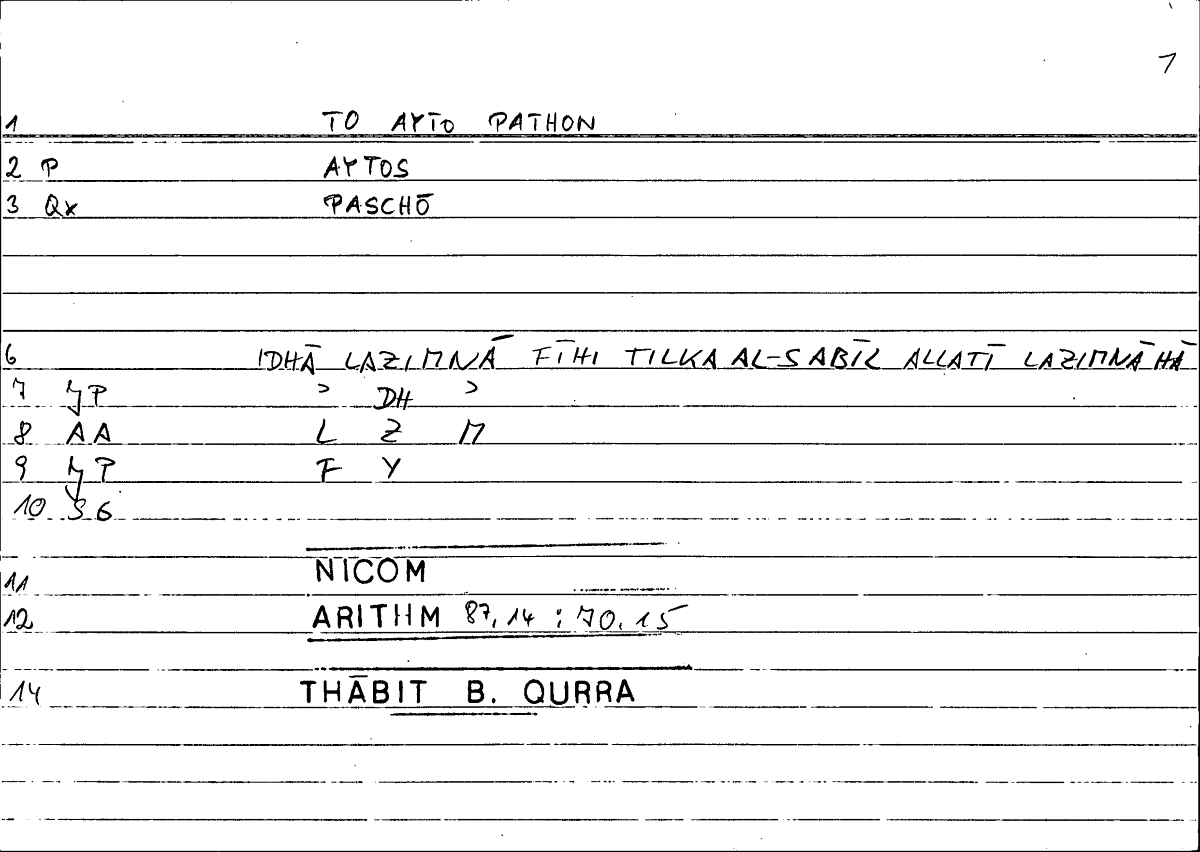 1
1 TO AYTO PATHON
2 P AYTOS
3 Qx PASCHŌ
6 IDHĀ LAZIMNĀ FĪHI TILKA AL-SABĪL ALLATĪ LAZIMNĀHĀ
7 JP ʾ DH ʾ
8 AA L Z M
9 JP F Y
10 S6
11 NICOM
12 ARITHM 87,14 : 70.15
14 THĀBIT B. QURRA